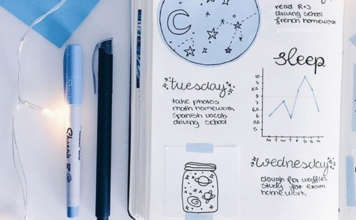 read R+J
driving school
french homework
sleep
tuesday
take photos
math homework
spanish vocab
driving school
m t w t f s s
wednesday
dough for waffles
study for exam
home work